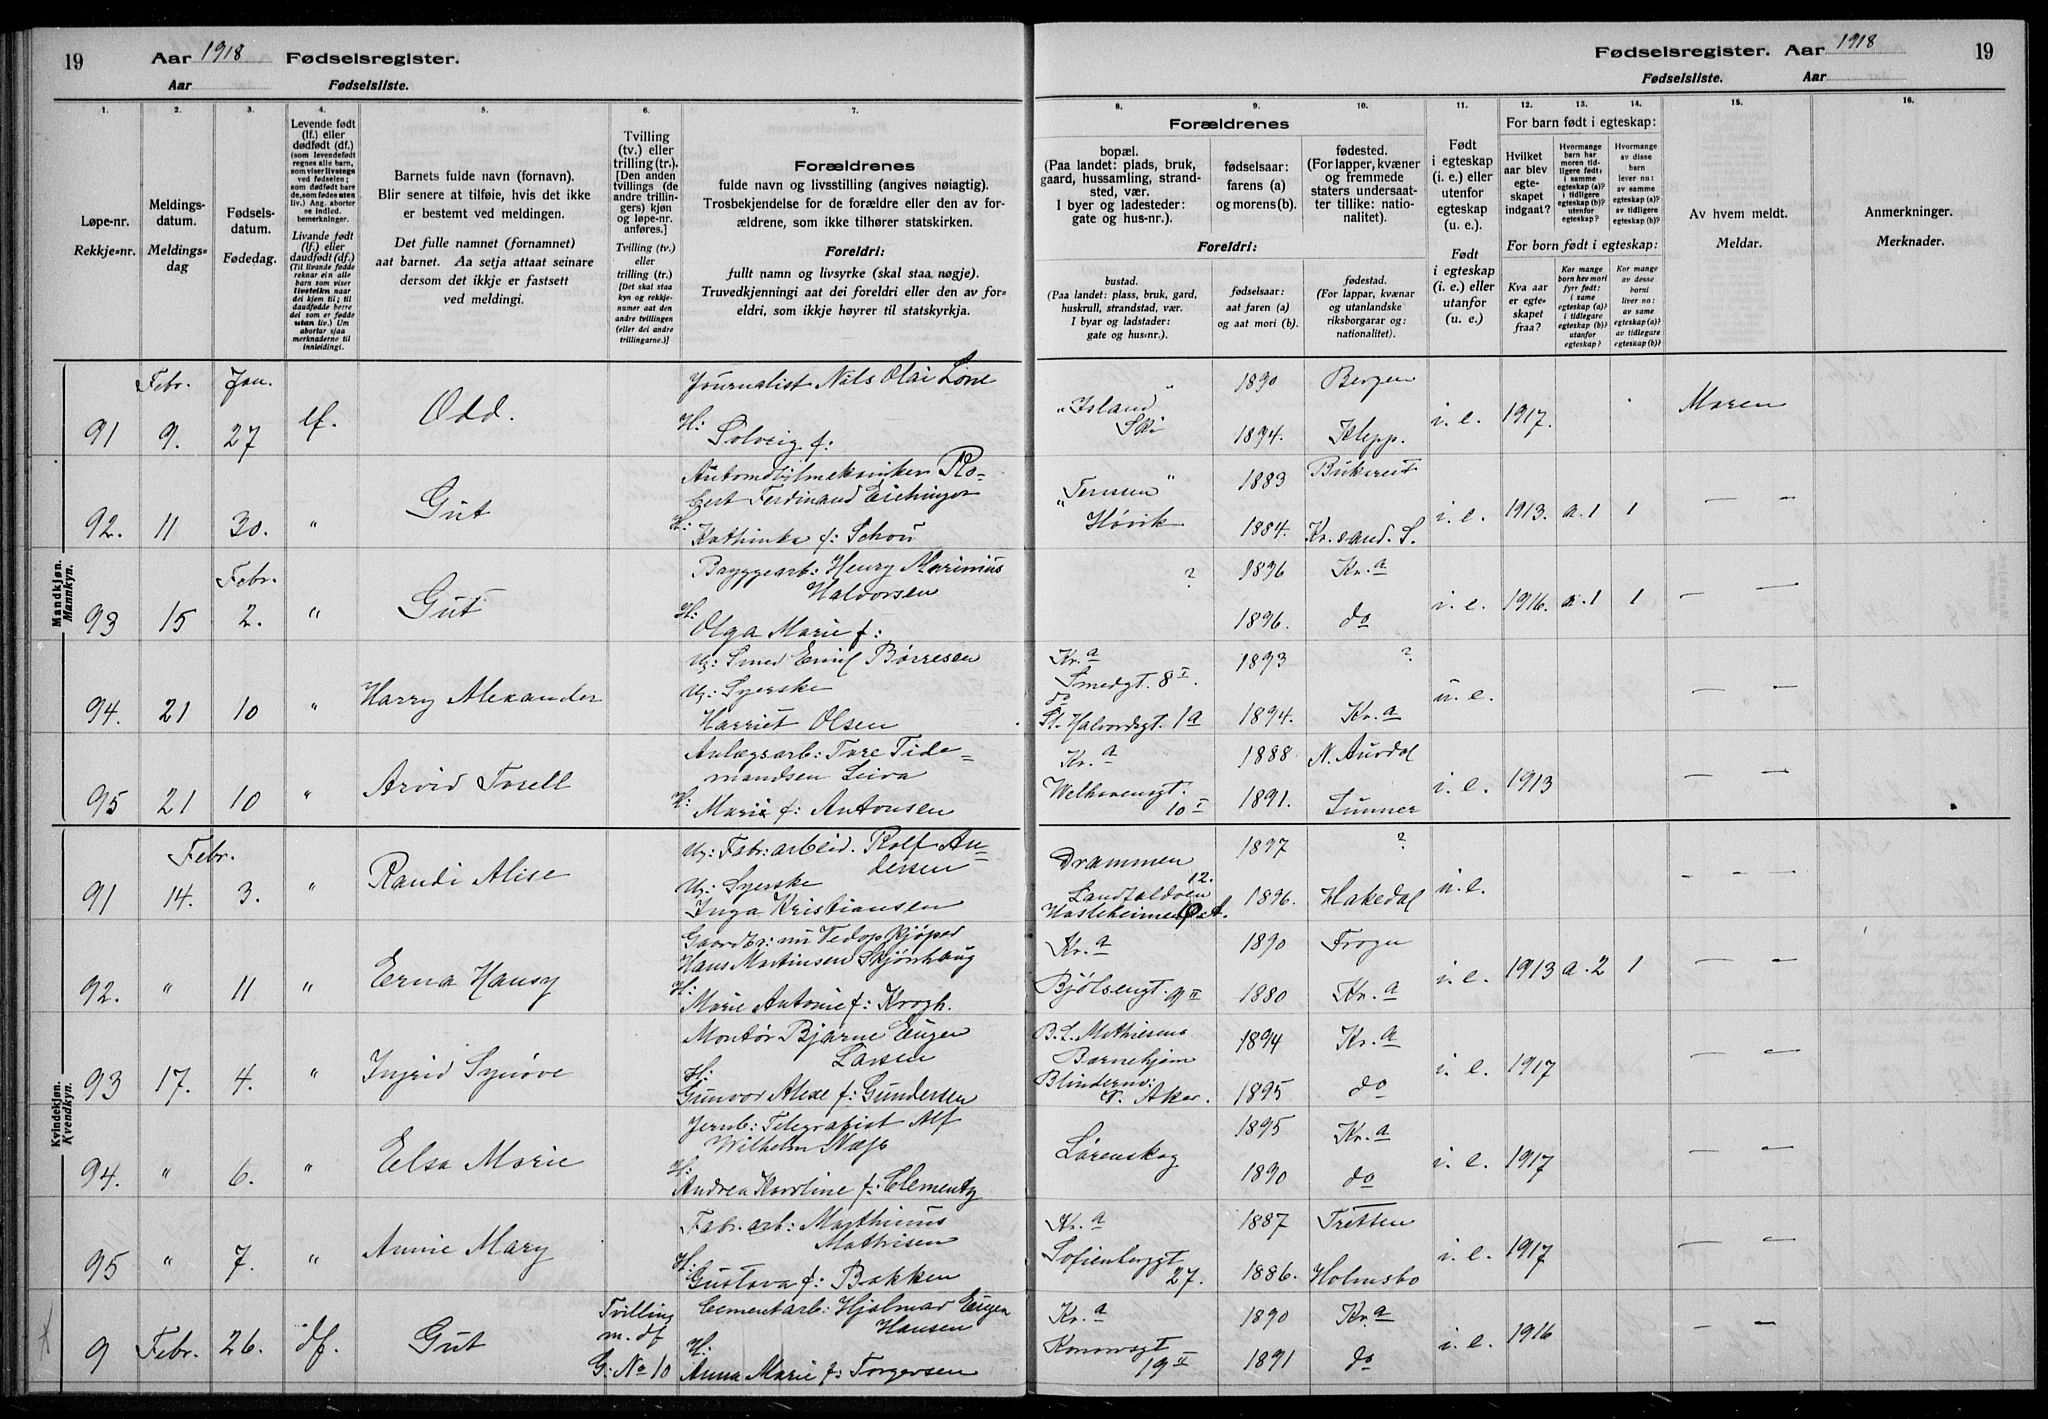 19 Aar 1918 Fødselsregister.
Aar Fødselsliste.
Fødselsregister. Aar 1918 19
Fødselsliste. Aar
1. 2. 3. 4. 5. 6. 7.
Løpe-nr.
Rekkje-nr.
Meldings-
datum.
Meldings-
dag
Fødsels-
datum.
Fødedag.
Levende født
(lf.) eller
dødfødt (df.)
(som levendefødt
regnes alle barn,
som viser livstegn
ved fødselen;
som dødfødt bare
de, som fødes uten
liv.) Ang. aborter
se indled.
bemerkninger.
Livande født
(lf.) eller
daudfødt (df.)
(Til livande fødde
reknar ein alle
barn som viser
livsteikn naar
dei kjem til; til
daudfødde berre
dei som er fødde
utan liv.) Um
abortar sjaa
merknaderne til
innleidingi.
Barnets fulde navn (fornavn).
Blir senere at tilføie, hvis det ikke
er bestemt ved meldingen.
Det fulle namnet (fornamnet)
aat barnet. Aa setja attaat seinare
dersom det ikkje er fastsett
ved meldingi.
Tvilling
(tv.) eller
trilling (tr.).
[Den anden
tvillings (de
andre trillin-
gers) kjøn
og løpe-nr.
anføres.]
Tvilling (tv.)
eller
trilling (tr.)
[Det skal staa
kyn og rekkje-
numer aat den
andre tvillingen
(eller dei andre
trillingarne.)]
Forældrenes
fulde navn og livsstilling (angives nøiagtig).
Trosbekjendelse for de forældre eller den av for-
ældrene, som ikke tilhører statskirken.
Foreldri:
fullt namn og livsyrke (skal staa nøgje).
Truvedkjenningi aat dei foreldri eller den av for-
eldri, som ikkje høyrer til statskyrkja.
8. 9. 10. 11. 12. 13. 14. 15. 16.
Forældrenes
bopæl.
(Paa landet: plads, bruk,
gaard, hussamling, strand-
sted, vær.
I byer og ladesteder:
gate og hus-nr.).
fødselsaar:
farens (a)
og morens (b).
fødested.
(For lapper, kvæner
og fremmede
staters undersaat-
ter tillike: natio-
nalitet).
Foreldri:
bustad.
(Paa landet: plass, bruk, gard,
huskrull, strandstad, vær.
I byar og ladstader:
gate og hus-nr.).
fødselsaar:
aat faren (a)
og aat mori (b).
fødestad.
(For lappar, kvænar
og utanlandske
riksborgarar og:
nationalitet).
Født
i egteskap
(i. e.) eller
utenfor
egteskap
(u. e.).
Født
i egteskap
(i. e.) eller
utanfor
(u. e.).
For barn født i egteskap:
Hvilket
aar blev
egte-
skapet
indgaat?
Hvormange
barn har
moren tid-
ligere født:
i samme
egteskap (a)?
i tidligere
egteskap (b)?
utenfor
egteskap?
Hvormange
av disse
barn
lever nu:
av samme
egteskap (a)?
av tidligere
egteskap (b)?
For born født i egteskap:
Kva aar
er egte-
skapet
fraa?
Kor mange
born hev mori
fyrr født:
i same
egteskap (a)?
i tidlegare
egteskap (b)?
utanfor
egteskap?
Kor mange
av desse
borni
liver no:
av same
egteskap (a)?
av tidlegare
egteskap (b)?
Av hvem meldt.
Meldar.
Anmerkninger.
Merknader.
Mandkjøn.
Mannkyn.
Febr. Jan. Journalist Nils Olai Lone 1890 Bergen
91 9. 27 lf. Odd. H: Solveig f: "Island" Ski 1894. Klepp. i. e. 1917. Moren
Automobilmekaniker Ro- 1883 Bukarest
bert Ferdinand Eichinger
92. 11 30. " Gut H: Kathinka f: Schou Høvik 1884. Kr.sand. S. i. e. 1913. a. 1 1 — " —
Febr. Bryggearb: Henry Marinius ? 1896 Kr.a
Halvorsen
93 15 2. " Gut H: Olga Marie f: 1896. do i. e. 1916. a. 1 1 — " —
U: Smed Emil Børresen Kr.a Smedgt. 8 I. 1893 ?
U: Syerske do
94. 21 10 " Harry Alexander Harriet Olsen St. Halvordsgt. 1a 1894. Kr.a u. e. — " —
Anlægsarb: Tore Tide- Kr.a 1888 N. Aurdal
mandsen Leira
95 21 10 " Arvid Torell H: Marie f: Antonsen Welhavensgt. 10 I 1891. Lunner i. e. 1913 — " —
Kvindekjøn.
Kvendkyn.
Febr. U: Fabr: arbeid. Rolf An- Drammen 1897 ?
dersen
U: Syerske 12.
91 14. 3. " Randi Alise Inga Kristiansen 1896. Hakedal u. e. — " —
Gaardbr: nu Vedopkjøper Kr.a 1890 Frogn
Hans Martinsen Skjønhaug
92. " 11 " Erna Hansy H: Marie Antonie f: Krogh. Bjølsengt. 9 II 1880 Kr.a i. e. 1913 a. 2 1 — " —
Montør Bjarne Eugen B. L. Mathiesens 1894 Kr.a
Larsen Barnehjem
93 17. 4. " Ingrid Synøve H: Gunvor Alexe f: Gundersen Blindernv: V. Aker. 1895 do i. e. 1917 — " —
Jernb: Telegrafist Alf 1895 Kr.a
Wilhelm Næss
94. " 6. " Elsa Marie H: Andrea Karoline f: Clementz Lørenskog 1890 do i. e. 1917 — " —
Fabr. arb: Marthinus Kr.a 1887 Tretten
Mathisen
95 " 7. " Annie Mary H: Gustava f: Bakken Sofienberggt 27. 1886. Holmsbo i. e. 1917 — " —
Tvilling Cementarb: Hjalmar Eugen Kr.a 1890 Kr.a
m. df Hansen
9 Febr. 26. df. Gut G: No 10 H: Anna Marie f: Torgersen Konowsgt 19 II 1891 do i. e. 1916 — " —